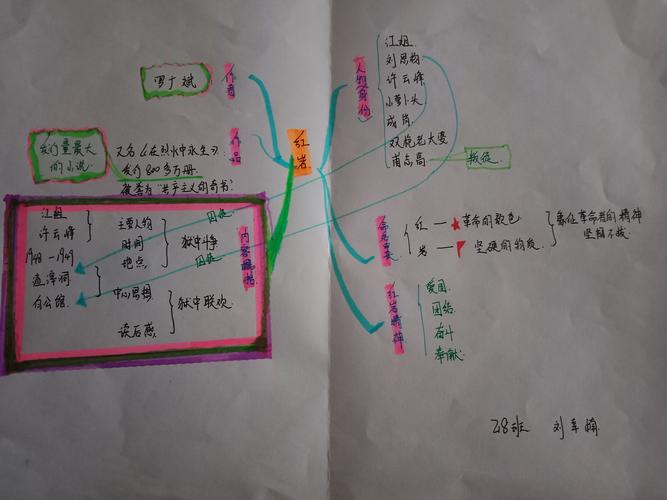 红岩
作者
罗广斌
作品
发行量最大
的小说
又名《在烈火中永生》
发行800多万册.
被誉为“共产主义的奇书”
内容概括
江姐
许云峰
1948-1949
渣滓洞
白公馆
主要人物
时间
地点
中心思想
读后感
狱中斗争
狱中联欢
人物身份
江姐
刘思扬
许云峰
小萝卜头
成岗
双枪老太婆
甫志高
叛徒
红 — 革命的颜色
岩 — 坚硬的物质
象征革命者的精神
坚韧不拔
红岩精神
爱国
团结
奋斗
奉献
28班